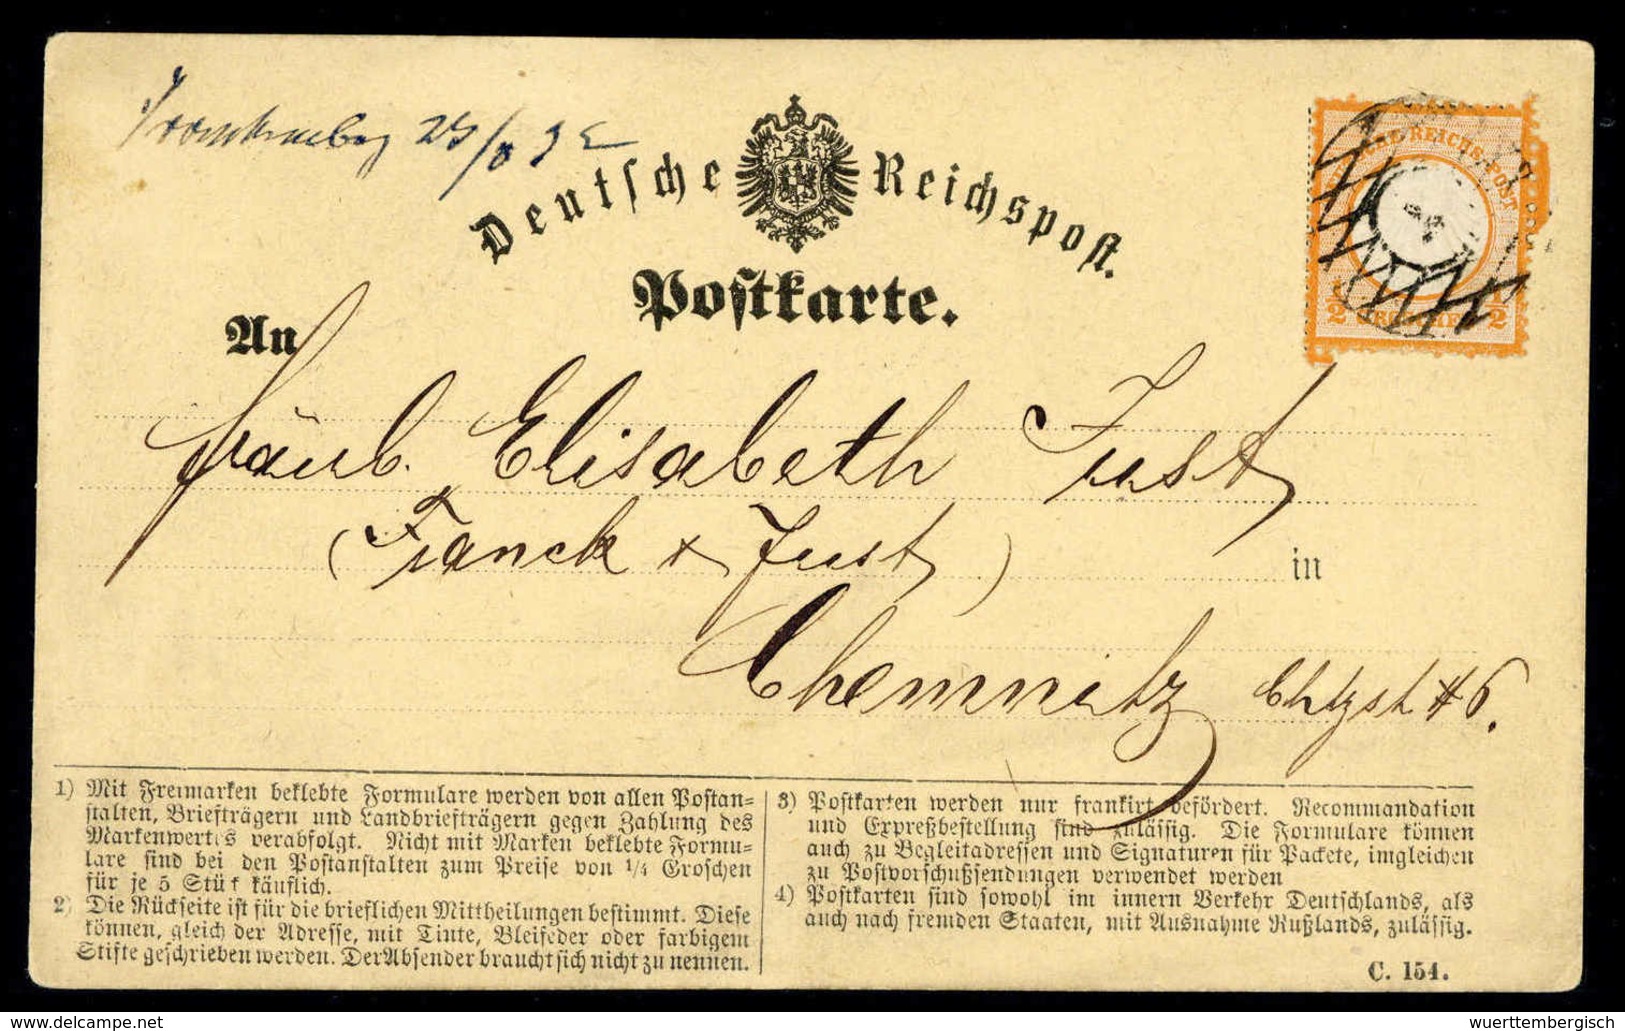 Deutsche Reichspost.
Postkarte.
An
Fräul. Elisabeth Just
(Franck & Just)
in
Chemnitz
1) Mit Freimarken beklebte Formulare werden von allen Postan=
stalten, Briefträgern und Landbriefträgern gegen Zahlung des
Markenwertes verabfolgt. Nicht mit Marken beklebte Formu=
lare sind bei den Postanstalten zum Preise von 1/4 Groschen
für je 5 Stück käuflich.
2) Die Rückseite ist für die brieflichen Mittheilungen bestimmt. Diese
können, gleich der Adresse, mit Tinte, Bleifeder oder farbigem
Stifte geschrieben werden. Der Absender braucht sich nicht zu nennen.
3) Postkarten werden nur frankirt befördert. Recommandation
und Expreßbestellung sind zulässig. Die Formulare können
auch zu Begleitadressen und Signaturen für Packete, imgleichen
zu Postvorschußsendungen verwendet werden
4) Postkarten sind sowohl im innern Verkehr Deutschlands, als
auch nach fremden Staaten, mit Ausnahme Rußlands, zulässig.
C. 154.
© the-stamps.com
wuerttembergisch